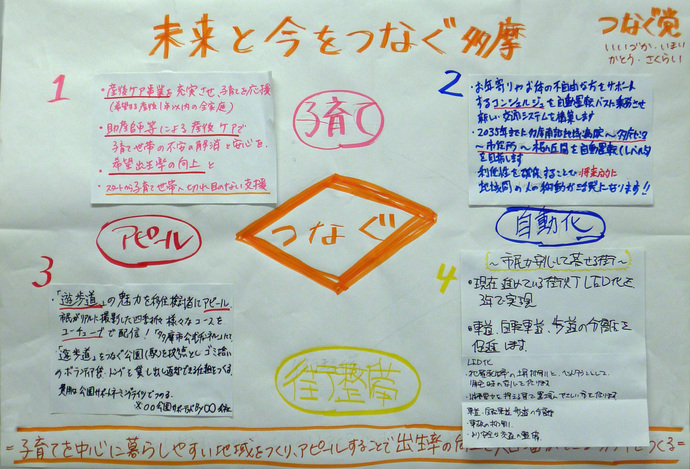 未来と今をつなぐ多摩
つなぐ党
いいづか・いまい
かとう・さくらい
1
・産後ケア事業を充実させ、子育てを応援
(希望する産後1年以内の全家庭)
・助産師等による産後ケアで
子育て世帯の不安の解消と安心を、
希望出生率の向上と
・スタートから子育て世帯へ切れ目のない支援
子育て
2
・お年寄りやお体の不自由な方をサポート
するコンシェルジュを自動運転バスに乗務させ
新しい交通システムを構築します
・2035年までに多摩南部地域病院〜多摩セン
〜市役所〜桜ヶ丘間を自動運転(レベル4)
を目指します
利便性を確保することで
地域間の人の移動が活発になります!!
アピール
つなぐ
自動化
3
・「遊歩道」の魅力を移住検討者にアピール
市民がリアルに撮影した四季折々様々なコースを
ユーチューブで配信!「多摩市公式チャンネル」にて
・「遊歩道」をつなぐ公園(駅)を拠点とし ゴミ拾い
のボランティア袋、トングを貸し出し
費用は公園サポートネーミングライツでつのる。
街整備
4
〜市民が安心して暮せる街〜
・現在進めている街灯LED化を
3年で実現
・車道、自転車道、歩道の分離を
促進します。
LED化
車道、自転車道、歩道の分離
=子育てを中心に暮らしやすい地域をつくり、アピールすることで出生率の向上と
つくる=